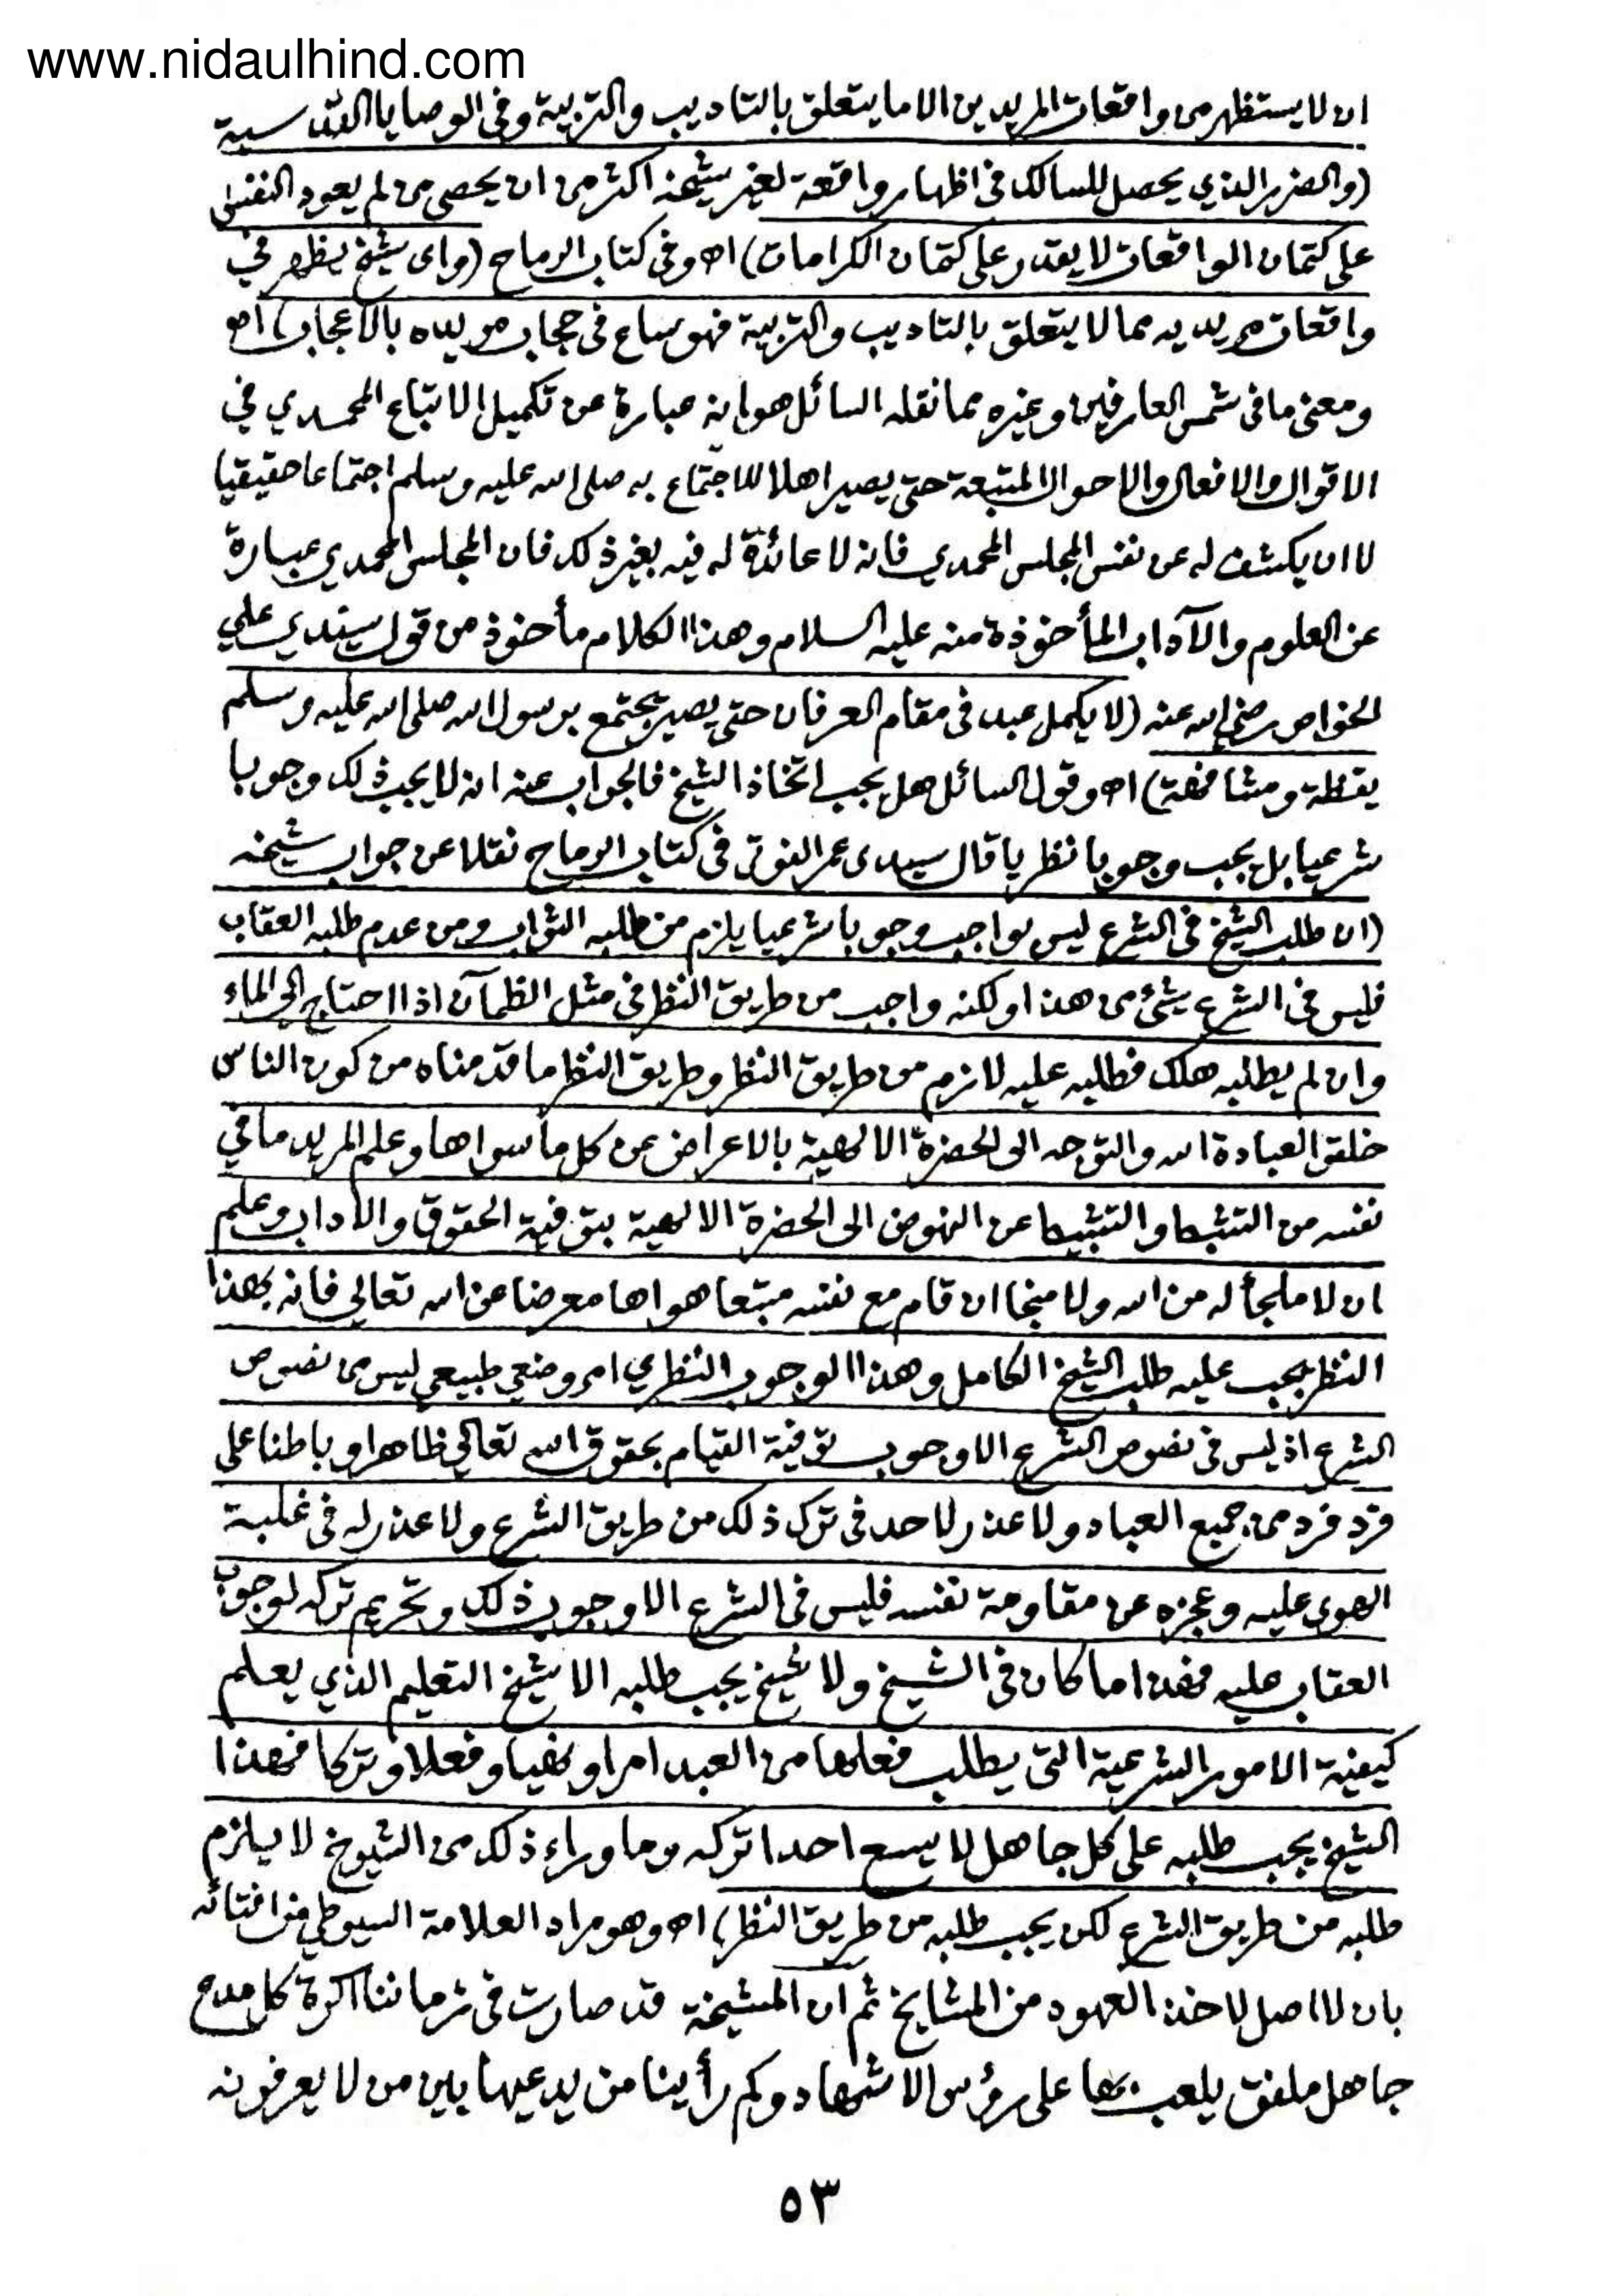 www.nidaulhind.com
ان لا يستظهر من واقعات المريدين الا ما يتعلق بالتاديب والتربية وفى الوصايا القدسية
(والضرر الذي يحصل للسالك فى اظهار واقعة لغير شيخه اكثر من ان يحصى من لم يعود النفس
على كتمان الواقعات لا يقدر على كتمان الكرامات) اه وفى كتاب الرماح (واى شيخ يظهر في
واقعات مريديه مما لا يتعلق بالتاديب والتربية فهو ساع فى حجاب مريده بالاعجاب) اه
ومعنى ما فى شمس العارفين وغيره مما نقله السائل هو انه عبارة عن تكميل الاتباع المحمدي في
الاقوال والافعال والاحوال المتبعة حتى يصير اهلا للاجتماع به صلى الله عليه وسلم اجتماعا حقيقيا
لا ان يكشف له عن نفس المجلس المحمدي فانه لا عائدة له فيه بغير ذلك فان المجلس المحمدي عبارة
عن العلوم والآداب المأخوذة منه عليه السلام وهذا الكلام مأخوذ من قول سيدي علي
الخواص رضي الله عنه (لا يكمل عبد فى مقام العرفان حتى يصير يجتمع برسول الله صلى الله عليه وسلم
يقظة ومشافهة) اه وقول السائل هل يجب اتخاذ الشيخ فالجواب عنه انه لا يجب ذلك وجوبا
شرعيا بل يجب وجوبا نظريا قال سيدى عمر الفوتى فى كتاب الرماح نقلا عن جواب شيخه
(ان طلب الشيخ فى الشرع ليس بواجب وجوبا شرعيا يلزم من طلبه الثواب ومن عدم طلبه العقاب
فليس فى الشرع شئ من هذا ولكنه واجب من طريق النظر فى مثل الظمآن اذا احتاج الى الماء
وان لم يطلبه هلك فطلبه عليه لازم من طريق النظر وطريق النظر ما قدمناه من كون الناس
خلقوا لعبادة الله والتوجه الى الحضرة الالهية بالاعراض عن كل ما سواها وعلم المريد ما في
نفسه من التثبط والتثبيط عن النهوض الى الحضرة الالهية بتوفية الحقوق والاداب وعلم
ان لا ملجأ له من الله ولا منجا ان قام مع نفسه متبعا هواها معرضا عن الله تعالى فانه بهذا
النظر يجب عليه طلب الشيخ الكامل وهذا الوجوب النظري امر وضعي طبيعي ليس من نصوص
الشرع اذ ليس فى نصوص الشرع الا وجوب توفية القيام بحقوق الله تعالى ظاهرا وباطنا على
فرد فرد من جميع العباد ولا عذر لاحد فى ترك ذلك من طريق الشرع ولا عذر له فى غلبة
الهوى عليه وعجزه عن مقاومة نفسه فليس فى الشرع الا وجوب ذلك وتحريم تركه لوجوب
العقاب عليه فهذا ما كان فى الشيخ ولا شيخ يجب طلبه الا شيخ التعليم الذي يعلم
كيفية الامور الشرعية التى يطلب فعلها من العبد امرا ونهيا وفعلا وتركا فهذا
الشيخ يجب طلبه على كل جاهل لا يسع احدا تركه وما وراء ذلك من الشيوخ لا يلزم
طلبه من طريق الشرع لكن يجب طلبه من طريق النظر) اه وهو مراد العلامة السيوطي من افتائه
بان لا اصل لاخذ العهود من المشايخ ثم ان المشيخة قد صارت فى زماننا اكرة كل مدع
جاهل ملفق يلعب بها على رؤس الاشهاد وكم رأينا من يدعيها بين من لا يعرفونه
٥٣